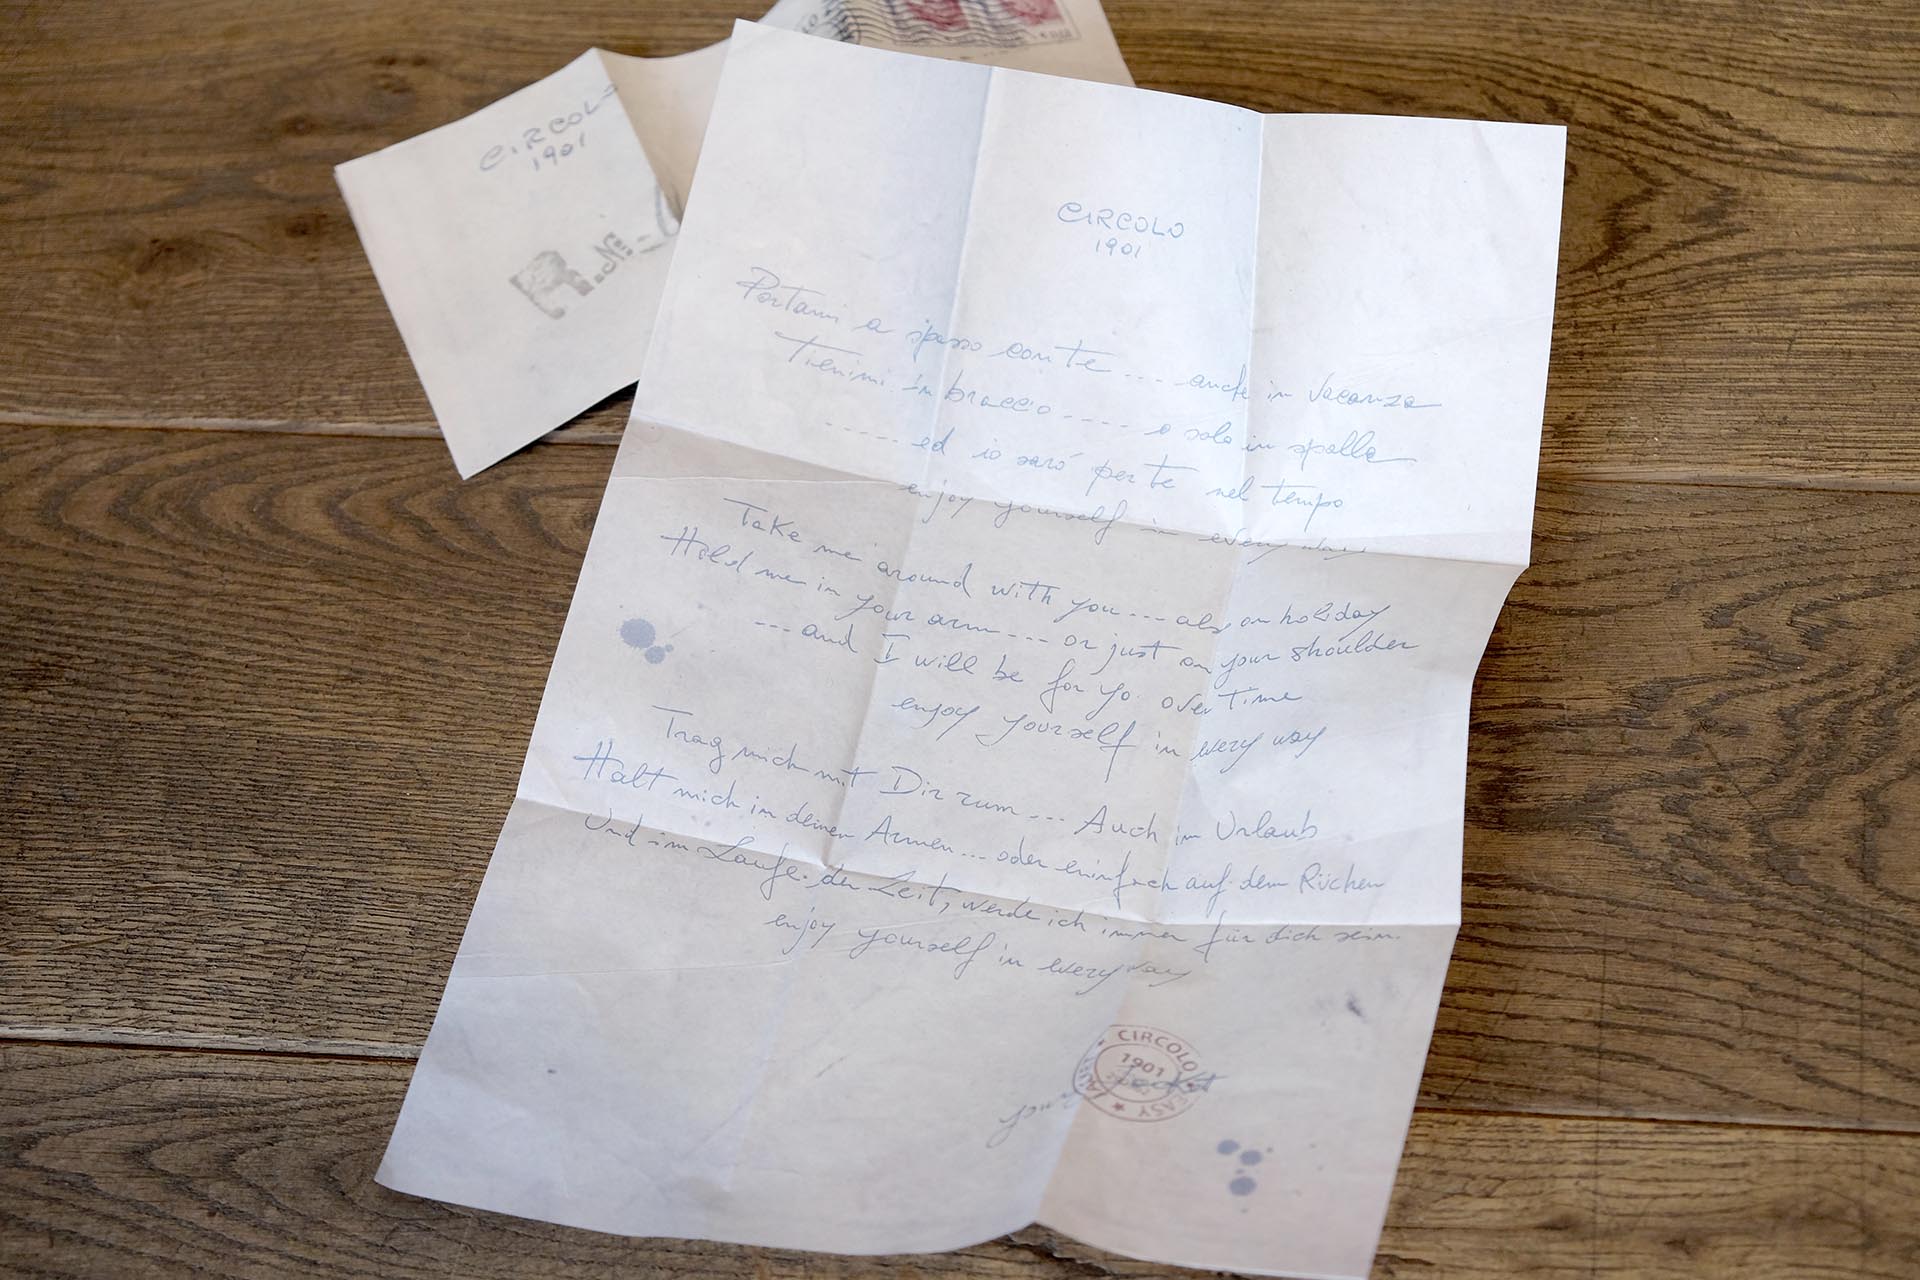 CIRCOLO
1901
CIRCOLO
1901
Portami a spasso con te --- anche in vacanza
Tienimi in braccio ---- o solo in spalla
----- ed io sarò per te nel tempo
enjoy yourself in every way
Take me around with you --- also on holiday
Hold me in your arm --- or just on your shoulder
--- and I will be for yo over time
enjoy yourself in every way
Trag mich mit Dir rum --- Auch im Urlaub
Halt mich in deinen Armen --- oder einfach auf dem Rüchen
Und im Laufe der Zeit, werde ich immer für dich sein.
enjoy yourself in every way
CIRCOLO
1901
EASY